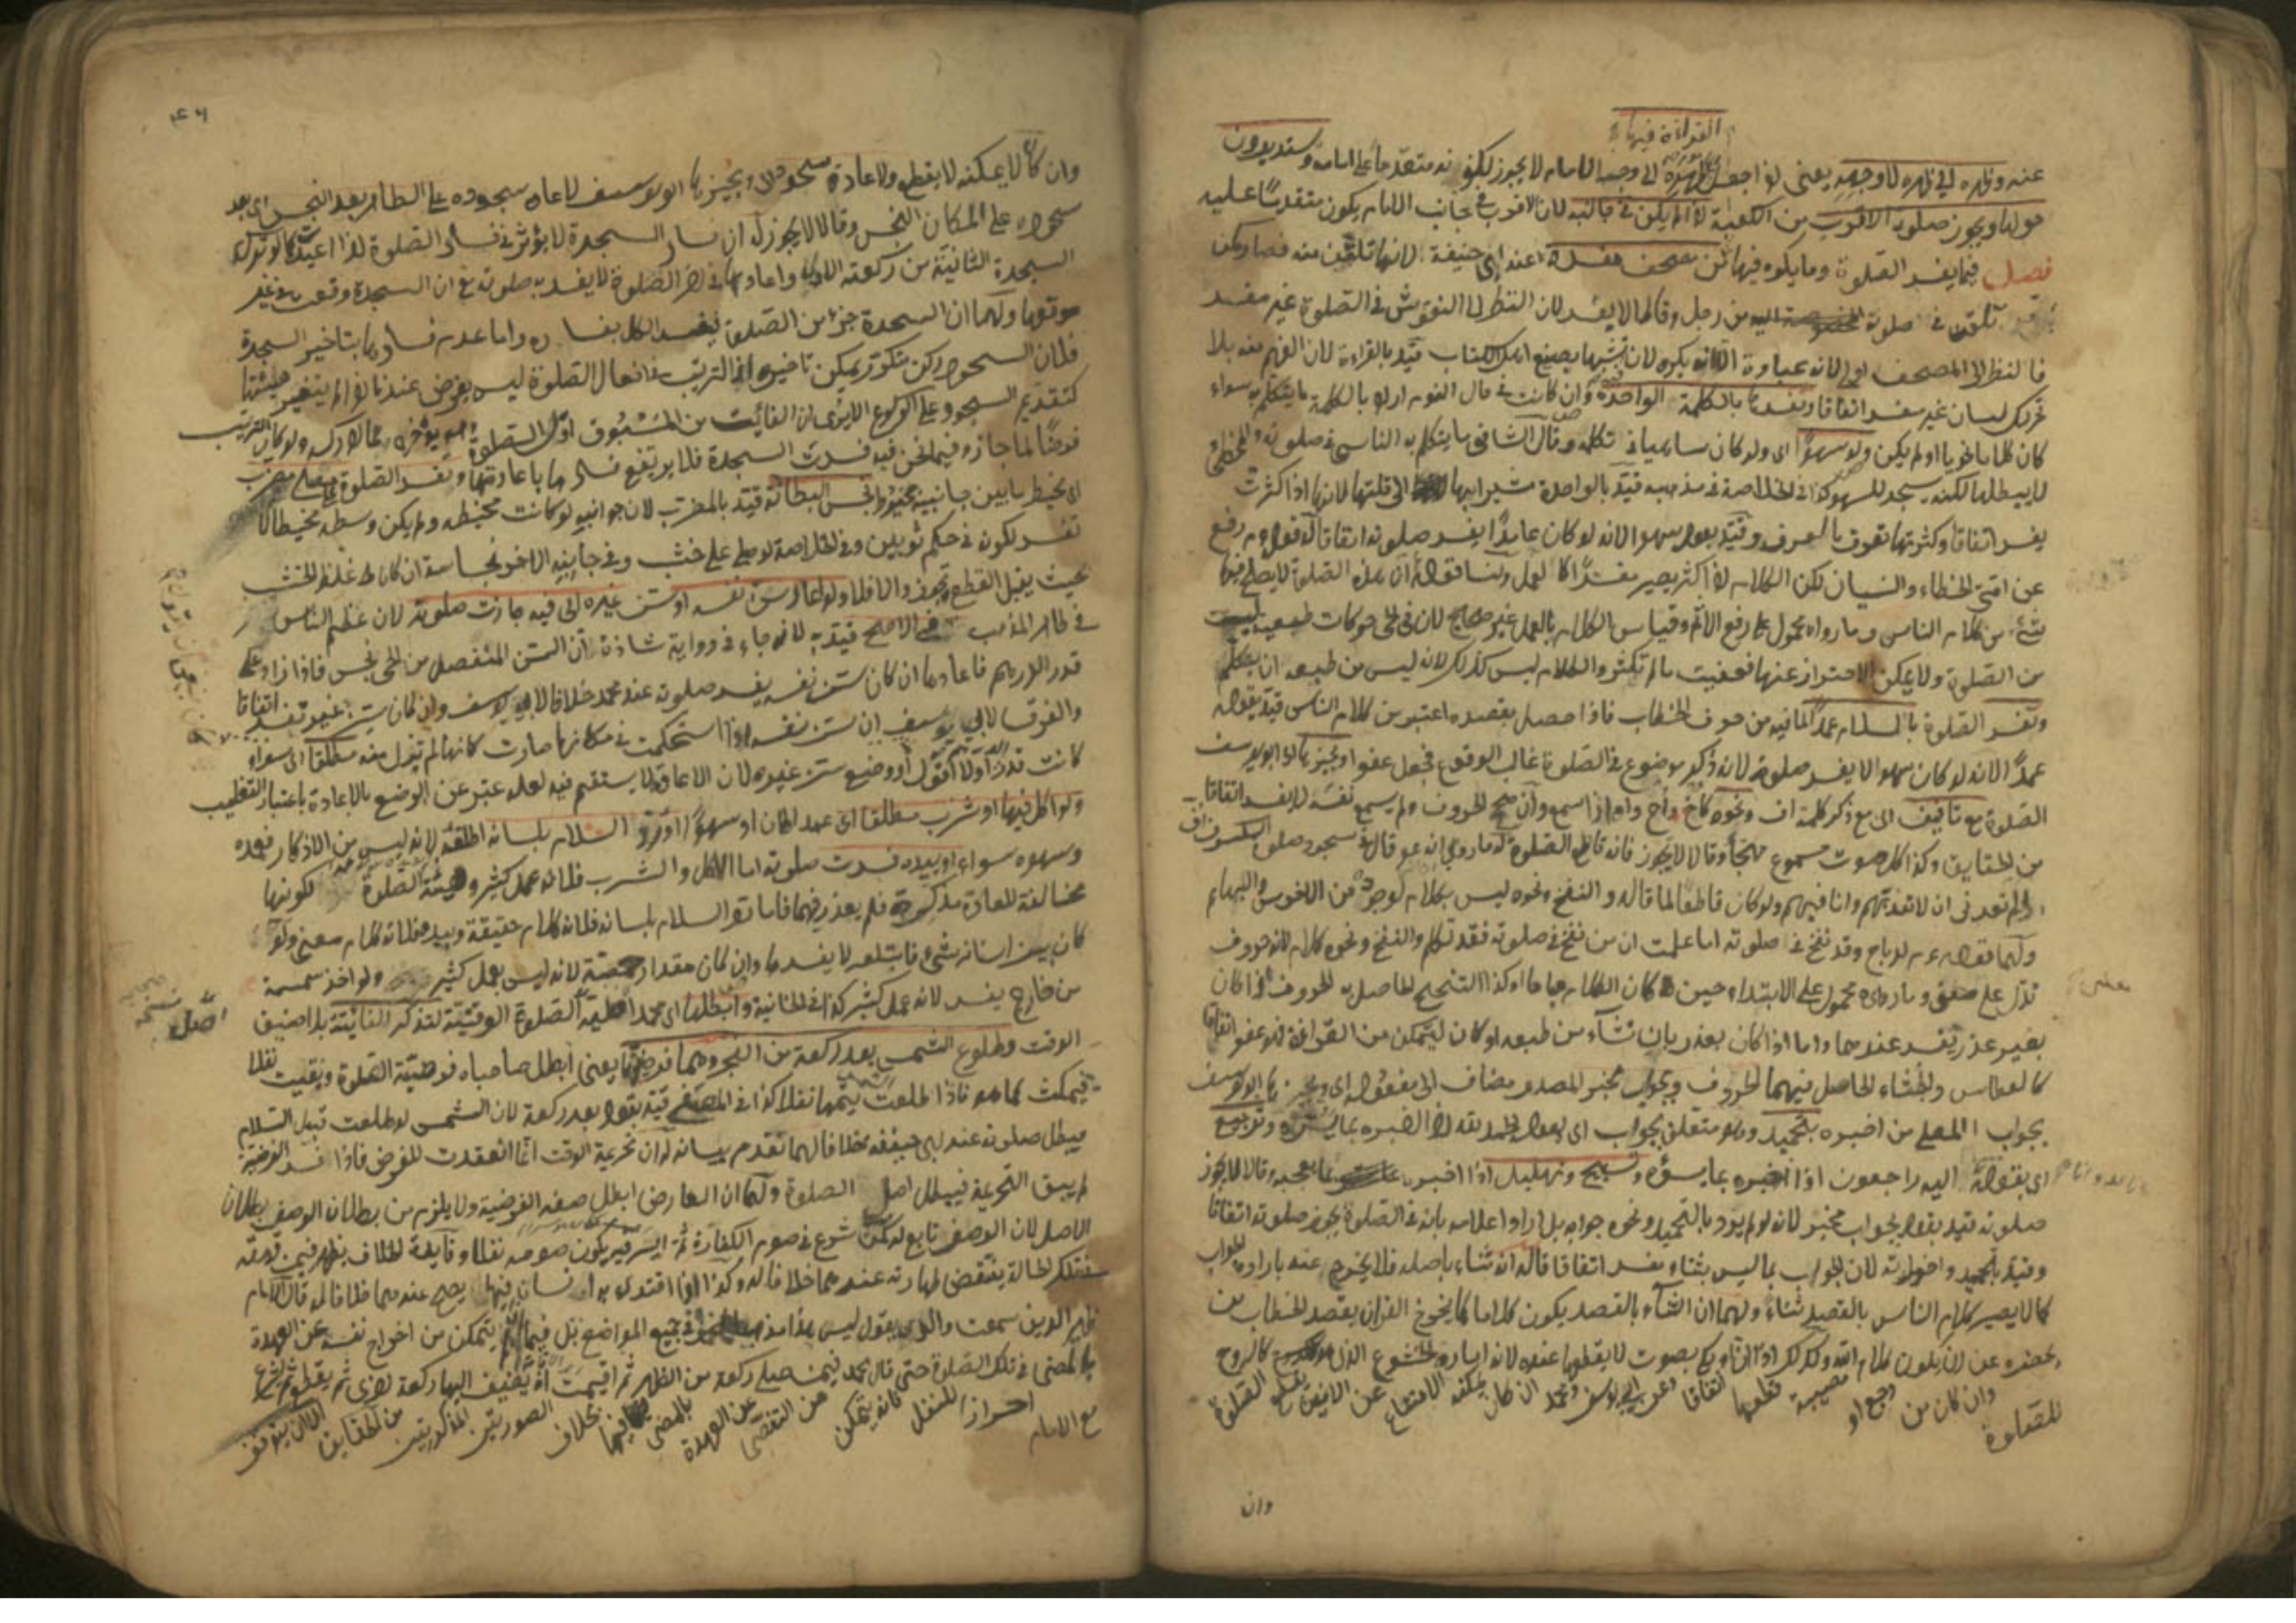 القراءة فيها
عنه وظهره الى ظهره لا وجهه يعنى لو اجعل ظهره الى وجه الامام لا يجوز لكونه متقدما على امامه ويستديرون
حولها ويجوز صلوة الاقرب من الكعبة اذا لم يكن فى جانبه لان الاقرب فى جانب الامام يكون متقدما عليه
فصل فيما يفسد الصلوة وما يكره فيها من مصحف مفسدة عند ابى حنيفة لانها تلقن منه فصار كمن
تلقن فى صلوته من رجل وقالا لا يفسد لان النظر الى النقوش فى الصلوة غير مفسد
فالنظر الى المصحف اولى لانه عبادة الا انه يكره لان تشبها بصنيع اهل الكتاب قيد بالقراءة لان الفهم منه بلا
تحرك لسان غير مفسد اتفاقا ونفسدها بالكلمة الواحدة وان كانت فى حال النوم اراد بالكلمة ما يتكلم به سواء
كان كلاما نحويا او لم يكن ولو سهوا اى ولو كان ساهيا فى تكلمه وقال الشافى ما يتكلم به الناسى فى صلوته والمخطئ
لا يبطلها لكنه يسجد للسهو كذا فى الخلاصة فى مذهبه قيد بالواحدة مشيرا بها الى قلتها لانها اذا كثرت
يفسد اتفاقا وكثرتها تعرف بالعرف وقيد بقوله سهوا لانه لو كان عامدا يفسد صلوته اتفاقا له قوله عم رفع
عن امتى الخطاء والنسيان لكن الكلام اذا كثر يصير مفسدا كالعمل ولنا قوله ان هذه الصلوة لا يصلح فيها
شئ من كلام الناس وما رواه محمول على رفع الاثم وقياس الكلام بالعمل غير صحيح لان فى الحى حركات طبيعية ليست
من الصلوة ولا يمكن الاحتراز عنها فعفيت ما لم تكثر والكلام ليس كذلك لانه ليس من طبعه ان يتكلم
وتفسد الصلوة بالسلام عمدا لما فيه من حرف الخطاب فاذا حصل بقصده اعتبر من كلام الناس قيد بقوله
عمدا لانه لو كان سهوا لا يفسد صلوته لانه ذكر موضوع فى الصلوة غالب الوقوع فجعل عفوا ويجيز بها ابو يوسف
الصلوة مع تافيف اى مع ذكر كلمة اف ونحوه كاخ واح واه اذا اسمع وان صح الحروف ولم يسمع نفسه لا يفسد اتفاقا
من الحقايق وكذا كل صوت مسموع مهجا وقالا لا يجوز فانه قاطع الصلوة له ما روى انه عم قال فى سجود صلوة الكسوف اف
الم تعدنى ان لا تعذبهم وانا فيهم ولو كان قاطعا لما قاله والنفخ ونحوه ليس بكلام لوجوده من الاخرس والبهائم
ولهما قوله عم لرباح وقد نفخ فى صلوته اما علمت ان من نفخ فى صلوته فقد تكلم والنفخ ونحوه كلام لانه حروف
تدل على معنى وما رواه محمول على الابتداء حين كان الكلام مباحا وكذا التنحنح الحاصل به الحروف اذا كان
بغير عذر يفسد عندهما واما اذا كان بعذر بان نشاء من طبعه او كان ليتمكن من القراءة فهو عفو اتفاقا
كالعطاس والجشاء الحاصل فيهما الحروف وبجواب مخبر المصدر مضاف الى مفعوله اى ويجيز بها ابو يوسف
بجواب المصلى من اخبره بتحميد وهو متعلق بجواب اى بقوله الحمد لله اذا اخبره بما يسره وترجيع
اى بقوله انا اليه راجعون اذا اخبره بما يسؤه وتسبيح وتهليل اذا اخبر بما يعجبه وقالا لا يجوز
صلوته قيد بقوله بجواب مخبر لانه لو لم يرد بالتحميد ونحوه جوابه بل اراد اعلامه بانه فى الصلوة يجوز صلوته اتفاقا
وقيد بتحميد واخواته لان الجواب بما ليس بثناء يفسد اتفاقا له انه ثناء باصله فلا يخرج عنه بارادة الجواب
كما لا يصير كلام الناس بالقصد ثناء ولهما ان الثناء بالقصد يكون كلاما كما يخرج القران بقصد الخطاب من
يحضره عن ان يكون كلام الله وكذلك اذا تاوه بكى بصوت لا يقطعها عنده لانه امارة الخشوع
وان كان من وجع او مصيبة قطعها اتفاقا وعن ابى يوسف ومحمد ان كان يمكنه الامتناع عن الانين يقطع الصلوة
للصلوة
وان
وان كان لا يمكنه لا يقطع ولاعادة سجود ويجيزها ابو يوسف لاعادة سجوده على الطاهر بعد النجس اى بعد
سجوده على المكان النجس وقالا لا يجوز له ان فساد السجدة لا يؤثر فى فساد الصلوة لذا اعيدت كما لو ترك
السجدة الثانية من ركعته الاولى واعادها فى اخر الصلوة لا يفسد به صلوته مع ان السجدة وقعت فى غير
موقعها ولهما ان السجدة جزء من الصلوة فيفسد الكل بفساده واما عدم فسادها بتاخير السجدة
فلان السجود ركن متكرر يمكن تاخيره اذ الترتيب فى افعال الصلوة ليس بفرض عندنا اذا لم يتغير هيئتها
كتقديم السجود على الركوع الا يرى ان الفائت من المسبوق اول الصلوة وهو يؤخره عما ادركه ولو كان الترتيب
فرضا لما جاز وفيما نحن فيه فسدت السجدة فلا يرتفع فسادها باعادتها وتفسد الصلوة على مصلى مضرب
اى مخيط ما بين جانبيه نجس البطانة قيد بالمضرب لان جوانبه لو كانت مخيطه ولم يكن وسطه مخيطا لا
تفسد لكونه فى حكم ثوبين وفى الخلاصة لو صلى على خشب وفى جانبه الاخر نجاسة ان كان غلظ الخشب
بحيث يقبل القطع تجوز والا فلا ولو اعاد سن نفسه او سن غيره الى فيه جازت صلوته لان عظم الناس
فى ظاهر المذهب هو الاصح قيد به لانه جاء فى رواية شاذة ان السن المنفصل من الحى نجس فاذا زاد على
قدر الدرهم فاعادها ان كان سن نفسه يفسد صلوته عند محمد خلافا لابى يوسف وان كان سن غيره تفسد اتفاقا
والفرق لابى يوسف ان سن نفسه اذا استحكمت فى مكانها صارت كانها لم تزل منه مطلقا اى سواء
كانت قدر الدرهم اولا اقول او وضع سن غيره لان الاعادة لا يستقيم فيه لعله عبر عن الوضع بالاعادة باعتبار التغليب
ولو اكل فيها او شرب مطلقا اى عمدا كان او سهوا او رد السلام بلسانه اطلقه لانه ليس من الاذكار فعمده
وسهوه سواء او بيده فسدت صلوته اما الاكل والشرب فلانه عمل كثير وهيئة الصلوة لكونها
مخالفة للعادة مذكرة فلم يعذر فيها السلام بلسانه فلانه كلام حقيقة وبيده فلانه كلام معنى ولو
كان بين اسنانه شئ فابتلعه لا يفسدها وان كان مقدار حمصة لانه ليس بعمل كثير ولو اخذ سمسمة
من خارج يفسد لانه عمل كثير كذا فى الخانية وابطلها اى محمد اصلية الصلوة الوقتية لتذكر الفائتة بلا ضيق
الوقت وطلوع الشمس بعد ركعة من الفجر وهما فرضيتها يعنى ابطل صاحباه فرضية الصلوة وبقيت نفلا
فيمكث كما هو فاذا طلعت يتمها نفلا كذا فى المصفى قيد بقوله بعد ركعة لان الشمس لو طلعت قبل السلام
يبطل صلوته عند ابى حنيفة خلافا لهما تقدم بيانه له ان تحريمة الوقت انما انعقدت للفرض فاذا فسد الفرضية
لم يبق التحريمة فيبطل اصل الصلوة ولهما ان العارض ابطل صفة الفرضية ولا يلزم من بطلان الوصف بطلان
الاصل لان الوصف تابع له كمن شرع فى صوم الكفارة ثم ايسر فيه يكون صومه نفلا وفايدة الخلاف يظهر فيمن قهقه
فى تلك الحالة ينتقض طهارته عندهما خلافا له وكذا اذا اقتدى به انسان فيها يصح عندهما خلافا له قال الامام
ظهير الدين سمعت والدى يقول ليس هذا مذهب محمد فى جميع المواضع بل فيما لم يتمكن من اخراج نفسه عن العهدة
بالمضى فى تلك الصلوة حتى قال محمد فيمن صلى ركعة من الظهر ثم اقيمت انه يضيف اليها ركعة اخرى ثم يقطع ثم يشرع
مع الامام احرازا للنفل فانه يتمكن من التقصى عن العهدة بالمضى فيها بخلاف الصورتين المذكورتين من الحقايق